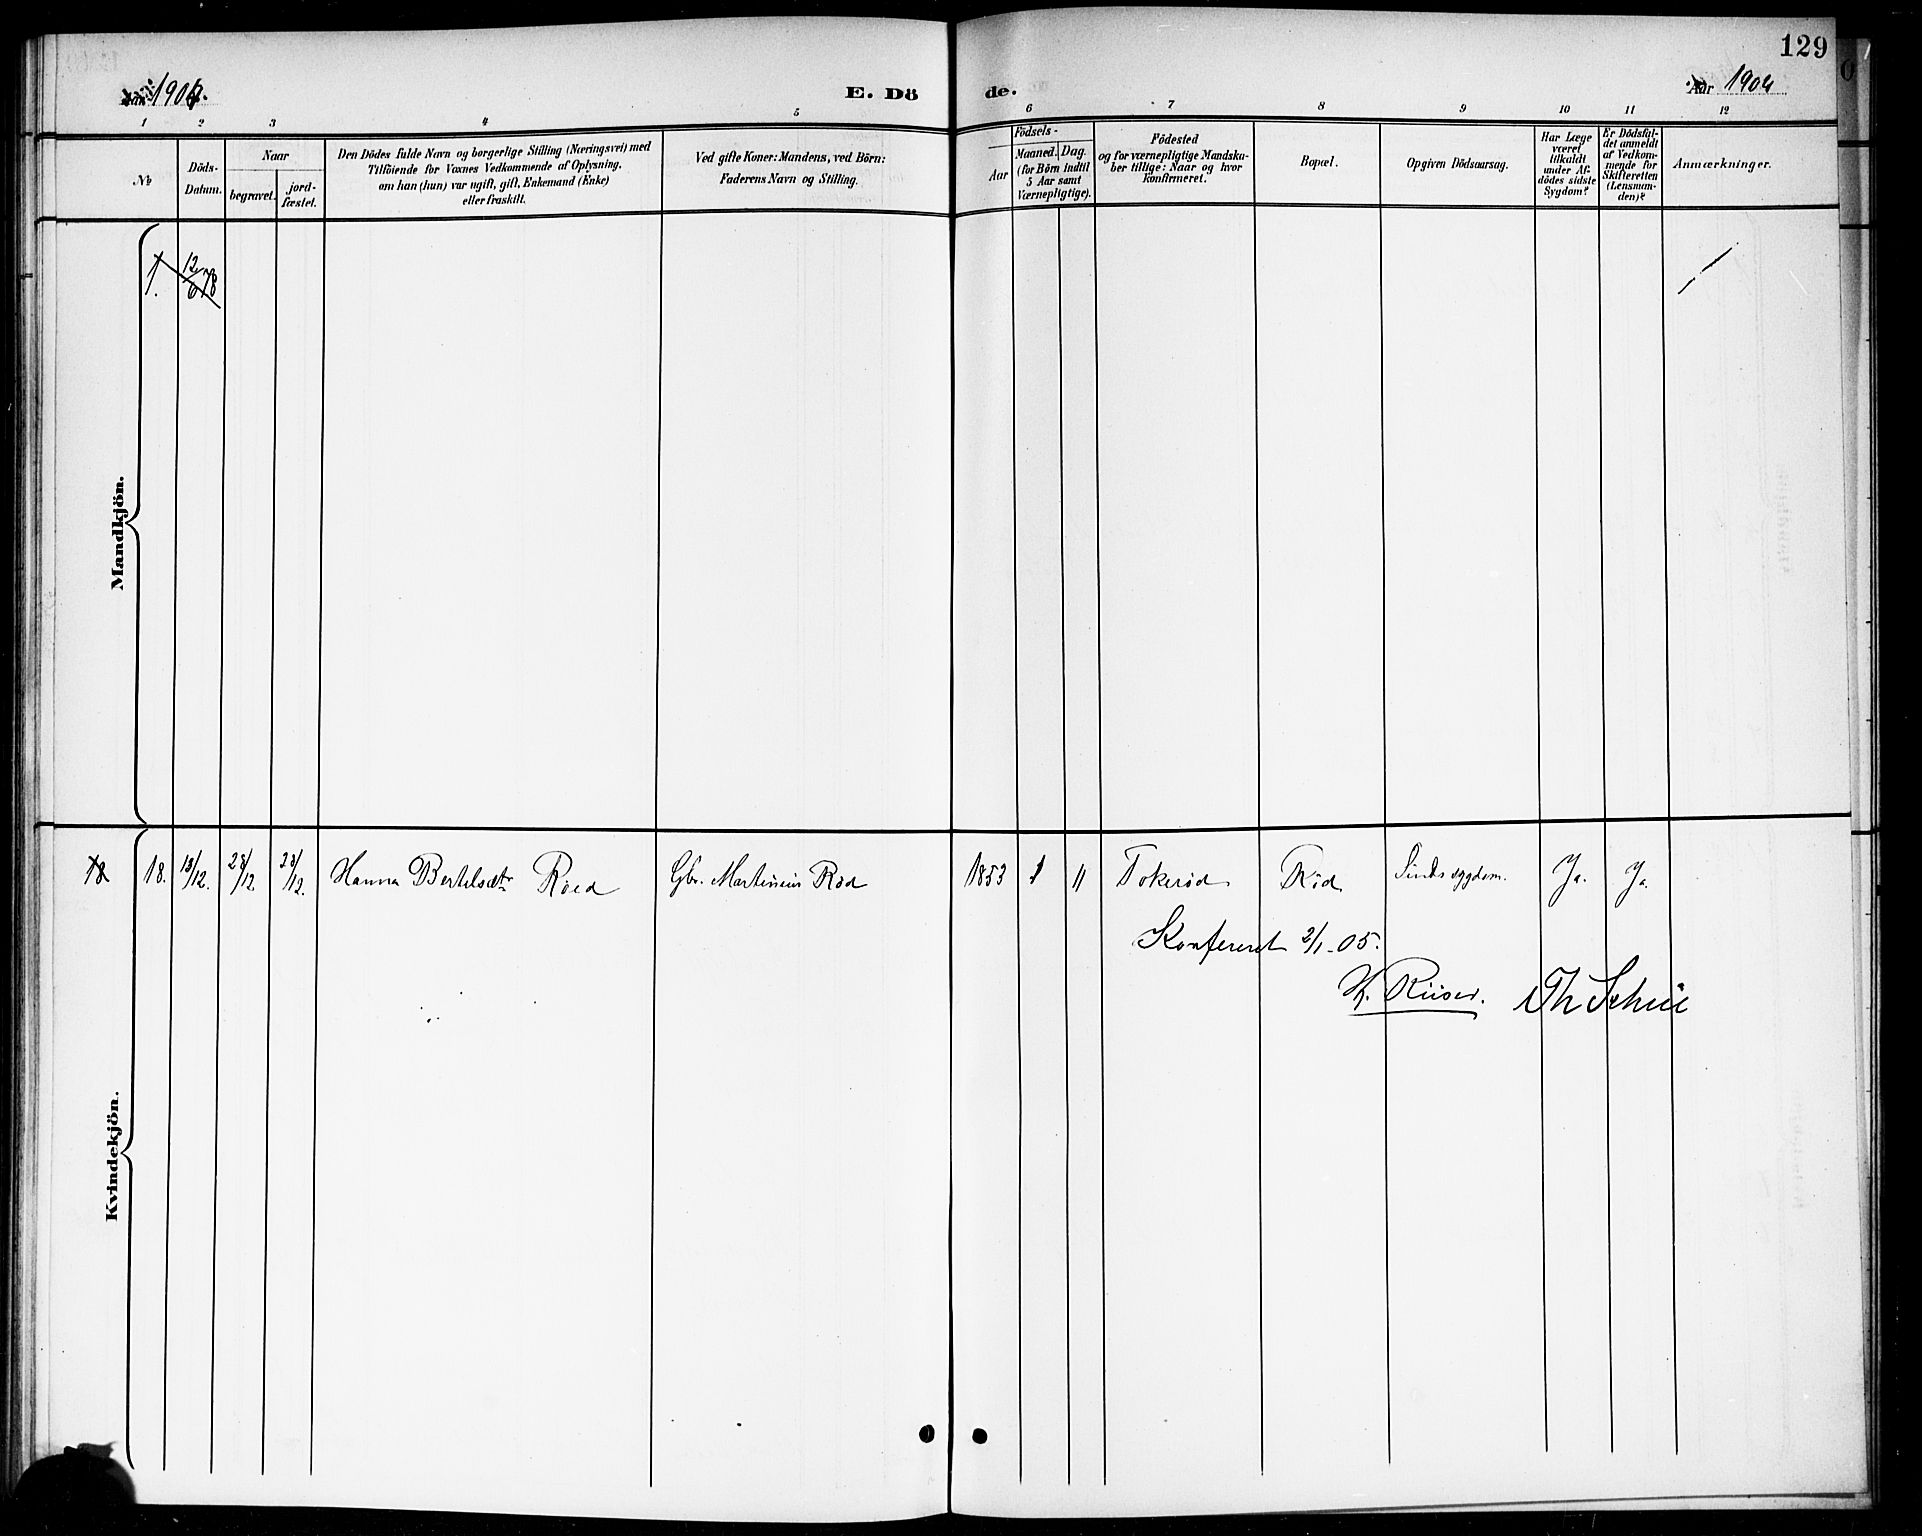 129
1904.
E. Dö
de.
Aar 1904
1 2 3 4 5 6 7 8 9 10 11 12
No
Döds-
Datum.
Naar
begravet.
jord-
fæstet.
Den Dödes fulde Navn og borgerlige Stilling (Næringsvei) med
Tilföiende for Voxnes Vedkommende af Oplysning,
om han (hun) var ugift, gift, Enkemand (Enke)
eller fraskilt.
Ved gifte Koner: Mandens, ved Börn:
Faderens Navn og Stilling.
Födsels-
Aar
Maaned. Dag.
(for Börn indtil
5 Aar samt
Værnepligtige).
Födested
og for værnepligtige Mandska-
ber tillige: Naar og hvor
konfirmeret.
Bopæl.
Opgiven Dödsaarsag.
Har Læge
været
tilkaldt
under Af-
dödes sidste
Sygdom?
Er Dödsfal-
det anmeldt
af Vedkom-
mende for
Skifteretten
(Lensman-
den)?
Anmærkninger.
Mandkjön.
1. 12/6 78
Kvindekjön.
18 18. 18/12. 28/12 28/12. Hanna Bertelsdtr Röed Gbr. Martinius Röd 1853 1 11 Tokeröd Röd Sindssygdom. Ja. Ja.
Konfereret 2/1-05.
H. Riiser. Th Schiie